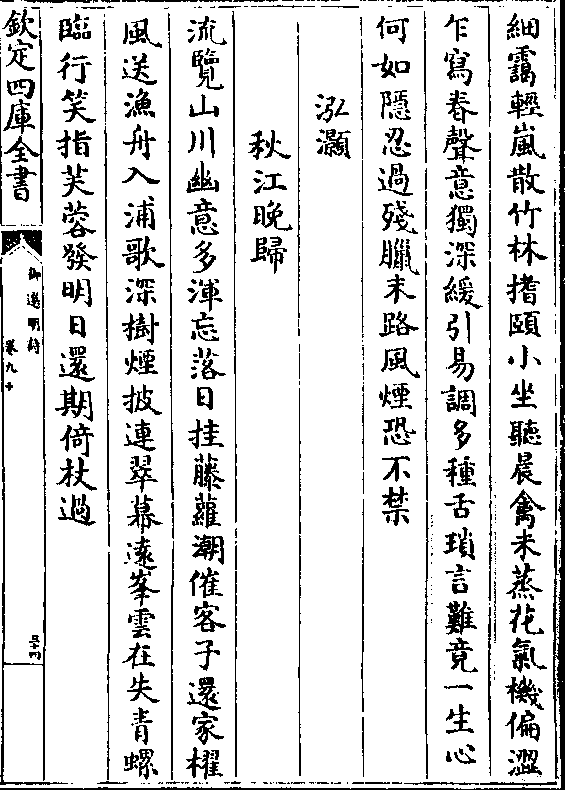 細靄輕嵐散竹林搘頤小坐聽晨禽未蒸花氣機偏澀
乍寫春聲意獨深緩引易調多種舌瑣言難竟一生心
何如隱忍過殘臘末路風煙恐不禁
泓灝
秋江晚歸
流覽山川幽意多渾忘落日挂藤蘿潮催客子還家櫂
風送漁舟入浦歌深樹煙披連翠幕遠峯雲在失青螺
臨行笑指芙蓉發明日還期倚杖過
欽定四庫全書
御選明詩
卷九十